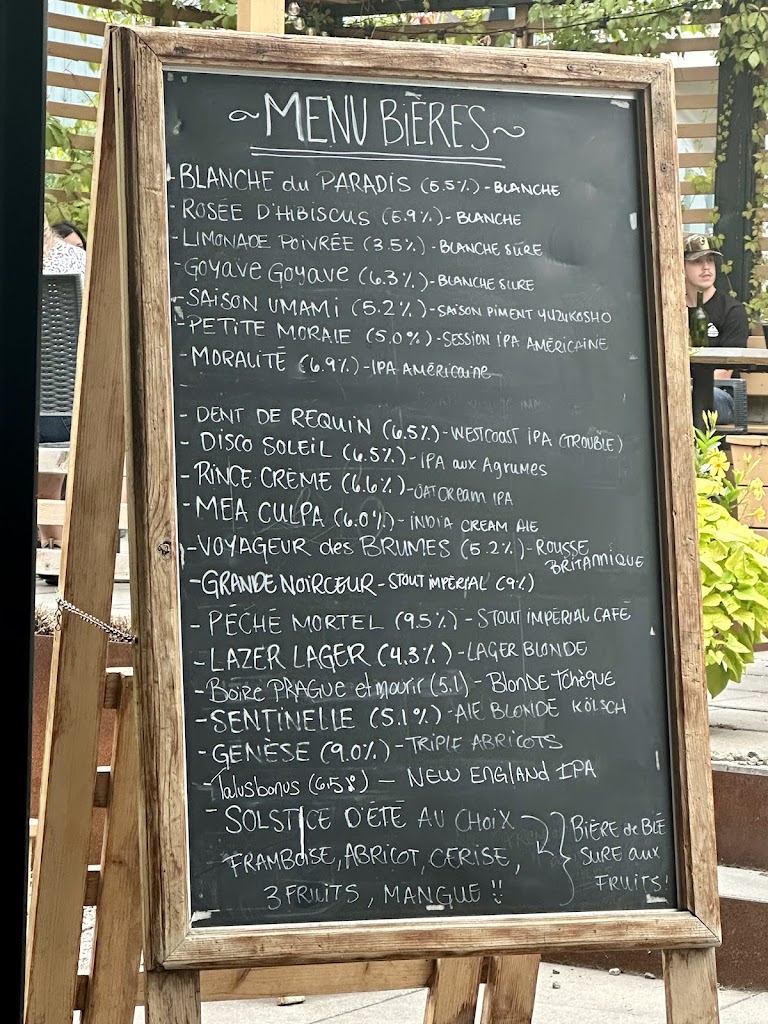 ~ MENU BIÈRES ~
- BLANCHE du PARADIS (5.5%) - BLANCHE
- ROSÉE D'HIBISCUS (5.9%) - BLANCHE
- LIMONADE POIVRÉE (3.5%) - BLANCHE SÛRE
- GOYAVE GOYAVE (6.3%) - BLANCHE SURE
- SAISON UMAMI (5.2%) - SAISON PIMENT YUZUKOSHO
- PETITE MORALE (5.0%) - SESSION IPA AMÉRICAINE
- MORALITÉ (6.9%) - IPA AMÉRICAINE
- DENT DE REQUIN (6.5%) - WESTCOAST IPA (TROUBLE)
- DISCO SOLEIL (6.5%) - IPA aux Agrumes
- RINCE CRÈME (6.6%) - OATCREAM IPA
- MEA CULPA (6.0%) - INDIA CREAM ALE
- VOYAGEUR des BRUMES (5.2%) - ROUSSE
BRITANIQUE
- GRANDE NOIRCEUR - STOUT IMPÉRIAL (9%)
- PÉCHÉ MORTEL (9.5%) - STOUT IMPÉRIAL CAFÉ
- LAZER LAGER (4.3%) - LAGER BLONDE
- Boire PRAGUE et mourir (5.1) - Blonde Tchèque
- SENTINELLE (5.1%) - ALE BLONDE KÖLSCH
- GENÈSE (9.0%) - TRIPLE ABRICOTS
Talusbonus (6.5%) — NEW ENGLAND IPA
- SOLSTICE D'ÉTÉ AU CHOIX
FRAMBOISE, ABRICOT, CERISE,
3 FRUITS, MANGUE !!
BIÈRE de BLÉ
SURE aux
FRUITS!